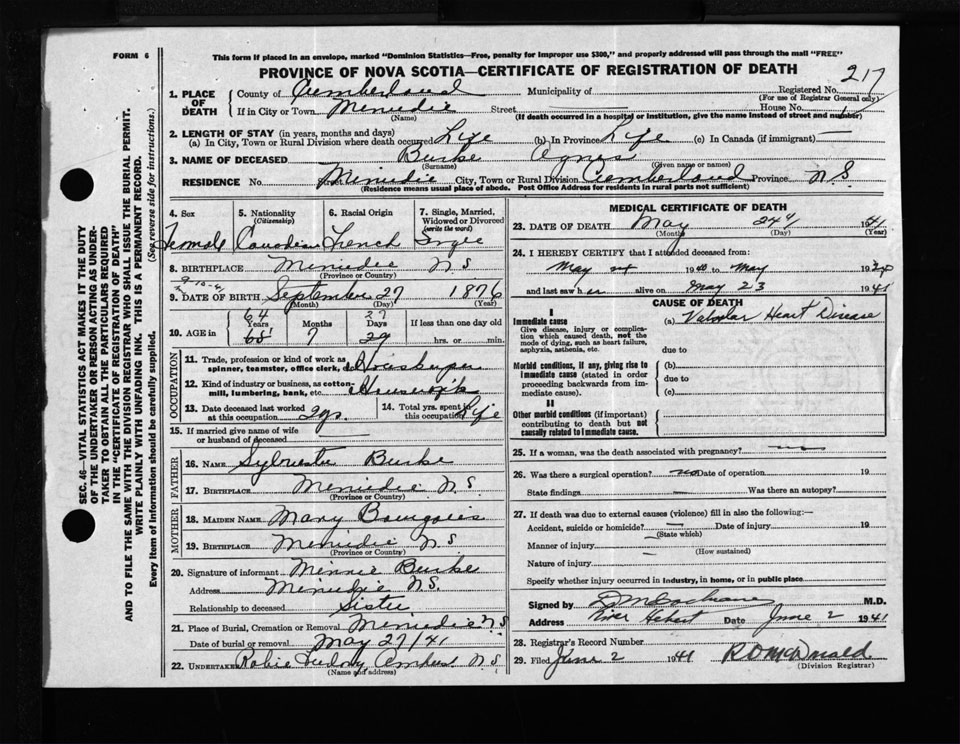 FORM 6
This form if placed in an envelope, marked "Dominion Statistics—Free, penalty for improper use $300," and properly addressed will pass through the mail "FREE"
PROVINCE OF NOVA SCOTIA—CERTIFICATE OF REGISTRATION OF DEATH
SEC. 46—VITAL STATISTICS ACT MAKES IT THE DUTY
OF THE UNDERTAKER OR PERSON ACTING AS UNDER-
TAKER TO OBTAIN ALL THE PARTICULARS REQUIRED
IN THE "CERTIFICATE OF REGISTRATION OF DEATH"
AND TO FILE THE SAME WITH THE DIVISION REGISTRAR WHO SHALL ISSUE THE BURIAL PERMIT.
WRITE PLAINLY WITH UNFADING INK. THIS IS A PERMANENT RECORD.
Every item of information should be carefully supplied. (See reverse side for instructions.)
1. PLACE OF DEATH County of Cumberland Municipality of Registered No. 217
(For use of Registrar General only)
If in City or Town Menudie Street House No.
(Name) (If death occurred in a hospital or institution, give the name instead of street and number)
2. LENGTH OF STAY (in years, months and days)
(a) In City, Town or Rural Division where death occurred Life (b) In Province Life (c) In Canada (if immigrant) —
3. NAME OF DECEASED Burke Agnes
(Surname) (Given name or names)
RESIDENCE No. Menudie City, Town or Rural Division Cumberland Province N.S.
(Residence means usual place of abode. Post Office Address for residents in rural parts not sufficient)
4. Sex 5. Nationality (Citizenship) 6. Racial Origin 7. Single, Married, Widowed or Divorced (write the word)
Female Canadian French Single
8. BIRTHPLACE Menudie N S
(Province or Country)
9. DATE OF BIRTH September 27 1876
(Month) (Day) (Year)
10. AGE in 64 27
Years Months Days If less than one day old
65 7 29 hrs. or min.
OCCUPATION
11. Trade, profession or kind of work as spinner, teamster, office clerk, etc. Housekeeper
12. Kind of industry or business, as cotton-mill, lumbering, bank, etc. Housework
13. Date deceased last worked at this occupation 2 yrs. 14. Total yrs. spent in this occupation Life
15. If married give name of wife or husband of deceased —
FATHER
16. NAME Sylvester Burke
17. BIRTHPLACE Menudie N.S.
(Province or Country)
MOTHER
18. MAIDEN NAME Mary Bourgeois
19. BIRTHPLACE Menudie N S
(Province or Country)
20. Signature of informant Minnie Burke
Address Menudie N.S.
Relationship to deceased Sister
21. Place of Burial, Cremation or Removal Menudie N S
Date of burial or removal May 27/41
22. UNDERTAKER Amherst N S
(Name and address)
MEDICAL CERTIFICATE OF DEATH
23. DATE OF DEATH May 24th 1941
(Month) (Day) (Year)
24. I HEREBY CERTIFY that I attended deceased from:
May 1940 to May 19
and last saw h er alive on May 23 1941
CAUSE OF DEATH
I
Immediate cause (a) Valvular Heart Disease
Give disease, injury or complication which caused death, not the mode of dying, such as heart failure, asphyxia, asthenia, etc.
due to
Morbid conditions, if any, giving rise to immediate cause (stated in order proceeding backwards from immediate cause). (b)
due to
(c)
II
Other morbid conditions (if important) contributing to death but not causally related to immediate cause.
25. If a woman, was the death associated with pregnancy? —
26. Was there a surgical operation? no Date of operation 19
State findings — Was there an autopsy?
27. If death was due to external causes (violence) fill in also the following:—
Accident, suicide or homicide? — Date of injury 19
(State which)
Manner of injury
(How sustained)
Nature of injury
Specify whether injury occurred in industry, in home, or in public place
Signed by Cochrane M.D.
Address River Hebert Date June 2 1941
28. Registrar's Record Number
29. Filed June 2 1941 R O McDonald
(Division Registrar)